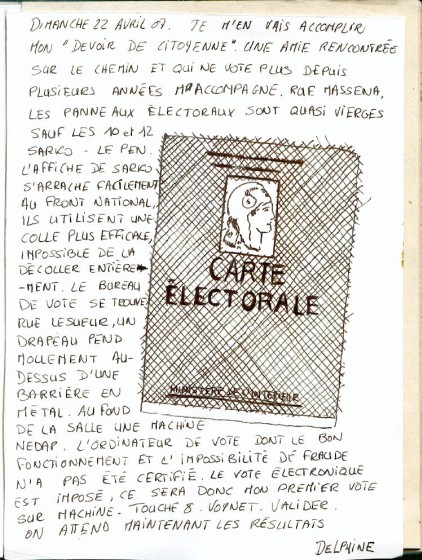 DIMANCHE 22 AVRIL 07. JE M'EN VAIS ACCOMPLIR
MON "DEVOIR DE CITOYENNE". UNE AMIE RENCONTRÉE
SUR LE CHEMIN ET QUI NE VOTE PLUS DEPUIS
PLUSIEURS ANNÉES M'ACCOMPAGNE. RUE MASSENA,
LES PANNEAUX ÉLECTORAUX SONT QUASI VIERGES
SAUF LES 10 et 12
SARKO - LE PEN.
L'AFFICHE DE SARKO
S'ARRACHE FACILEMENT
AU FRONT NATIONAL,
ILS UTILISENT UNE
COLLE PLUS EFFICACE,
IMPOSSIBLE DE LA
DÉCOLLER ENTIÈRE-
-MENT. LE BUREAU
DE VOTE SE TROUVE
RUE LESUEUR, UN
DRAPEAU PEND
MOLLEMENT AU-
DESSUS D'UNE
BARRIÈRE EN
MÉTAL. AU FOND
DE LA SALLE UNE MACHINE
NEDAP. L'ORDINATEUR DE VOTE DONT LE BON
FONCTIONNEMENT ET L'IMPOSSIBILITÉ DE FRAUDE
N'A PAS ÉTÉ CERTIFIÉ. LE VOTE ÉLECTRONIQUE
EST IMPOSÉ, CE SERA DONC MON PREMIER VOTE
SUR MACHINE. TOUCHE 8. VOYNET. VALIDER.
ON ATTEND MAINTENANT LES RÉSULTATS
DELPHINE
CARTE
ÉLECTORALE
MINISTÈRE DE L'INTÉRIEUR